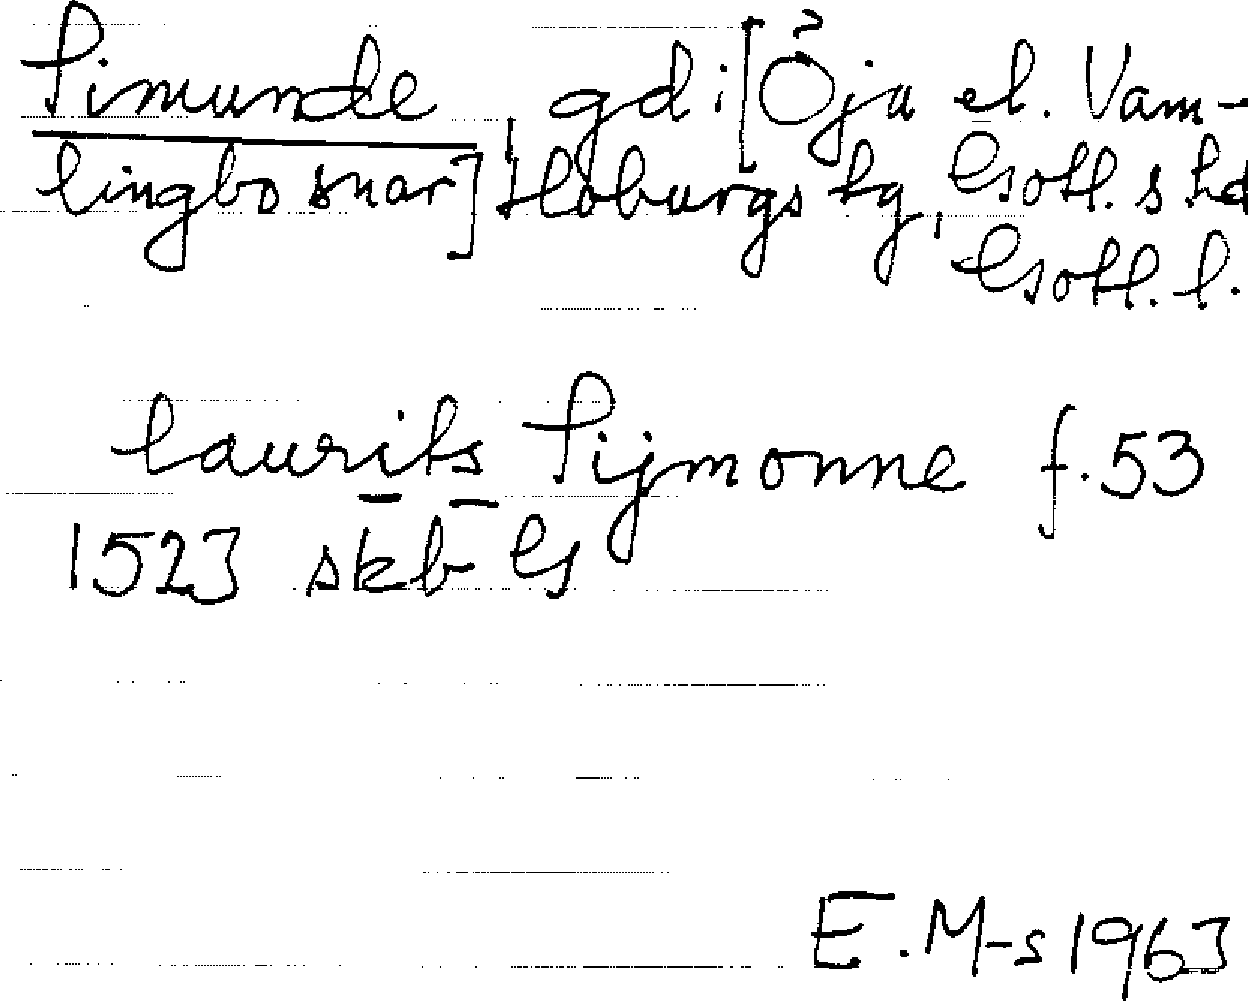 Simunde, gd i [Öja el. Vam-
lingbo snar] Hoburgs tg, Gotl. s hd
Gotl. l.
laurits Sijmonne f. 53
1523 skb G
E. M-s 1963